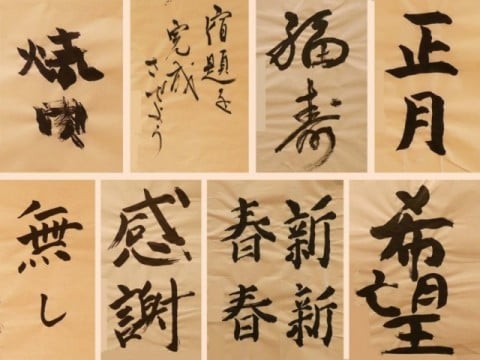 焼肉
宿題を
完成
させよう
福寿
正月
無し
感謝
新新
春春
希望